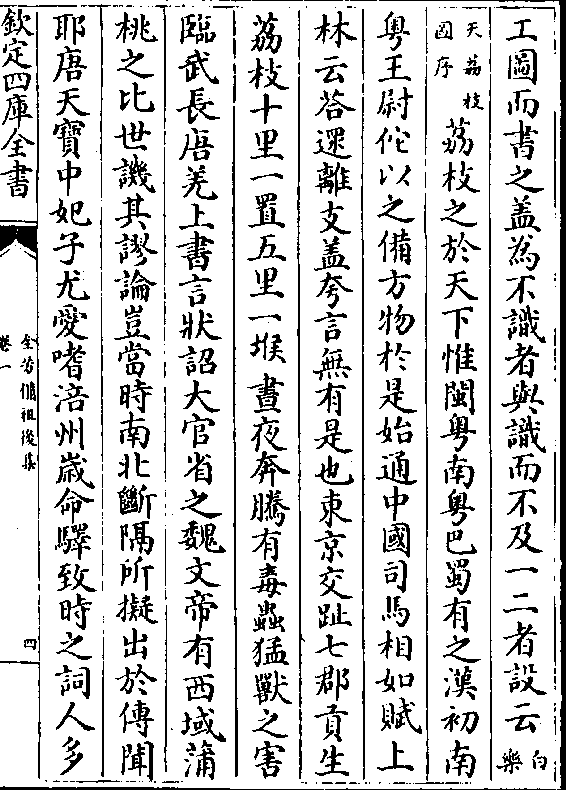 工圖而書之盖為不識者與識而不及一二者設云白樂
天荔枝圖序荔枝之於天下惟閩粤南粤巴蜀有之漢初南
粤王尉佗以之備方物於是始通中國司馬相如賦上
林云荅遝離支盖夸言無有是也東京交趾七郡貢生
荔枝十里一置五里一堠晝夜奔騰有毒蟲猛獸之害
臨武長唐羌上書言狀詔大官省之魏文帝有西域蒲
桃之比世譏其謬論豈當時南北斷隔所擬出於傳聞
耶唐天寶中妃子尤愛嗜涪州歳命驛致時之詞人多
欽定四庫全書
全芳備祖後集
卷一
四